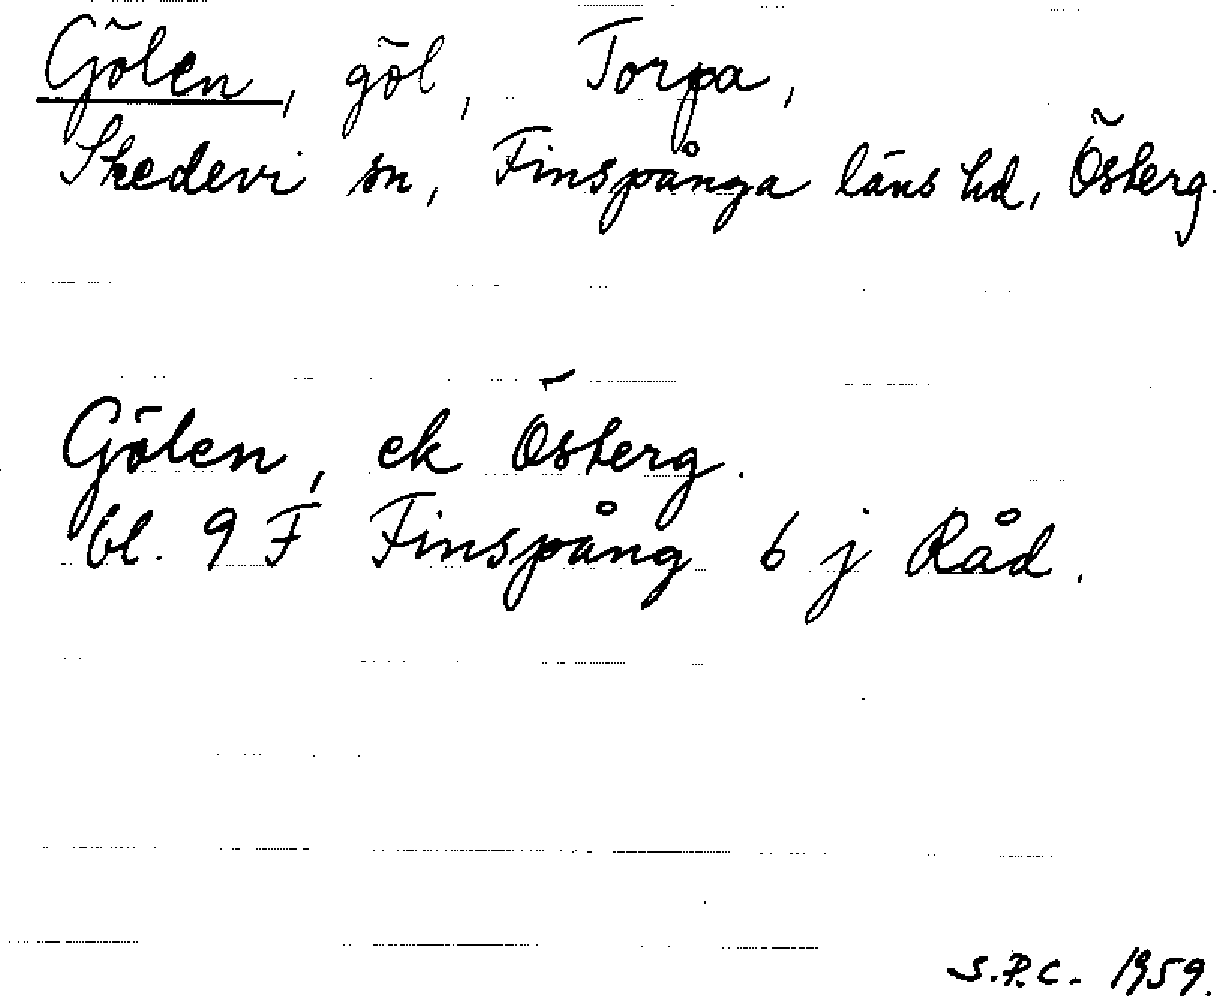 Gölen, göl, Torpa,
Skedevi sn, Finspånga läns hd, Österg.
Gölen, ek Österg.
bl. 9 F Finspång 6 j Råd.
S.P.C. 1959.